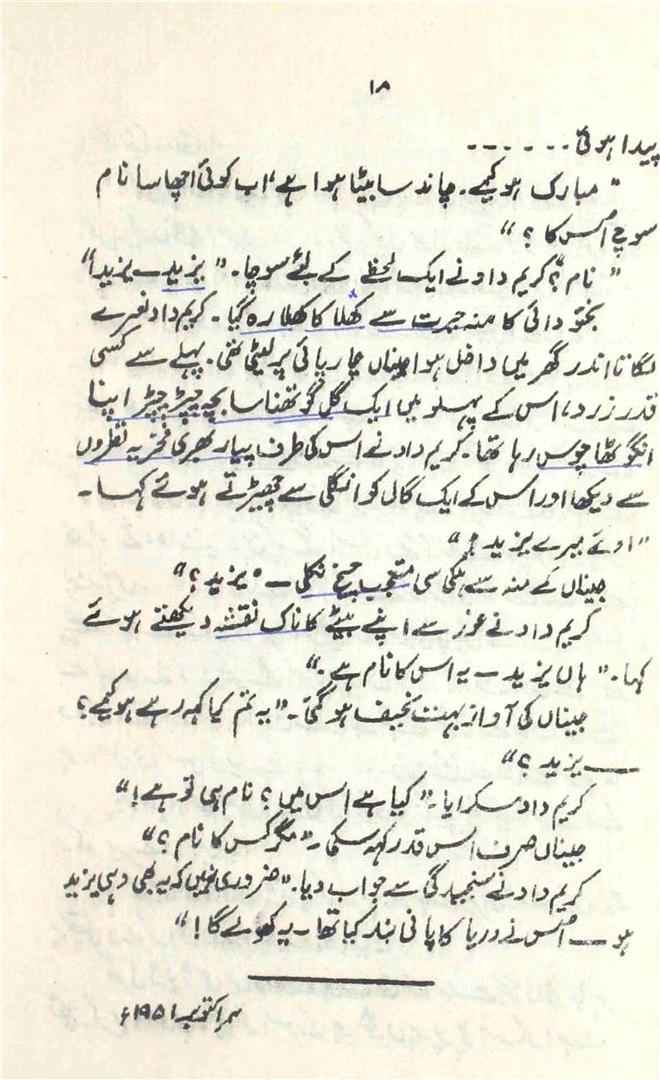 ۱۸
پیدا ہوئی۔۔۔۔۔۔
" مبارک ہو کیمے۔ چاند سا بیٹا ہوا ہے، اب کوئی اچھا سا نام
سوچ اُس کا ؟ "
" نام ؟" کریم داد نے ایک لحظے کے لئے سوچا۔ " یزید ــ یزید!"
بختو دائی کا منہ حیرت سے کھُلا کا کھلا رہ گیا۔ کریم داد نعرے
لگاتا اندر گھر میں داخل ہوا جیناں چارپائی پر لیٹی تھی۔ پہلے سے کسی
قدر زرد، اس کے پہلو میں ایک گل گوتھنا سا بچہ چپڑ چپڑ اپنا
انگوٹھا چوس رہا تھا۔ کریم داد نے اس کی طرف پیار بھری فخریہ نظروں
سے دیکھا اور اس کے ایک گال کو انگلی سے چھیڑتے ہوئے کہا۔
"اوئے میرے یزید ! "
جیناں کے منہ سے ہلکی سی متعجب چیخ نکلی ــ " یزید ؟ "
کریم داد نے غور سے اپنے بیٹے کا ناک نقشہ دیکھتے ہوئے
کہا۔ " ہاں یزید ــ یہ اس کا نام ہے۔ "
جیناں کی آواز بہت نحیف ہو گئی۔ " یہ تم کیا کہہ رہے ہو کیمے ؟
ــــ یزید ؟ "
کریم داد مسکرایا۔ " کیا ہے اس میں ؟ نام ہی تو ہے ! "
جیناں صرف اس قدر کہہ سکی ۔ " مگر کس کا نام ؟ "
کریم داد نے سنجیدگی سے جواب دیا۔ " ضروری نہیں کہ یہ بھی وہی یزید
ہو ــــ اُس نے دریا کا پانی بند کیا تھا ــ یہ کھولے گا ! "
۴ر اکتوبر ۱۹۵۱ء